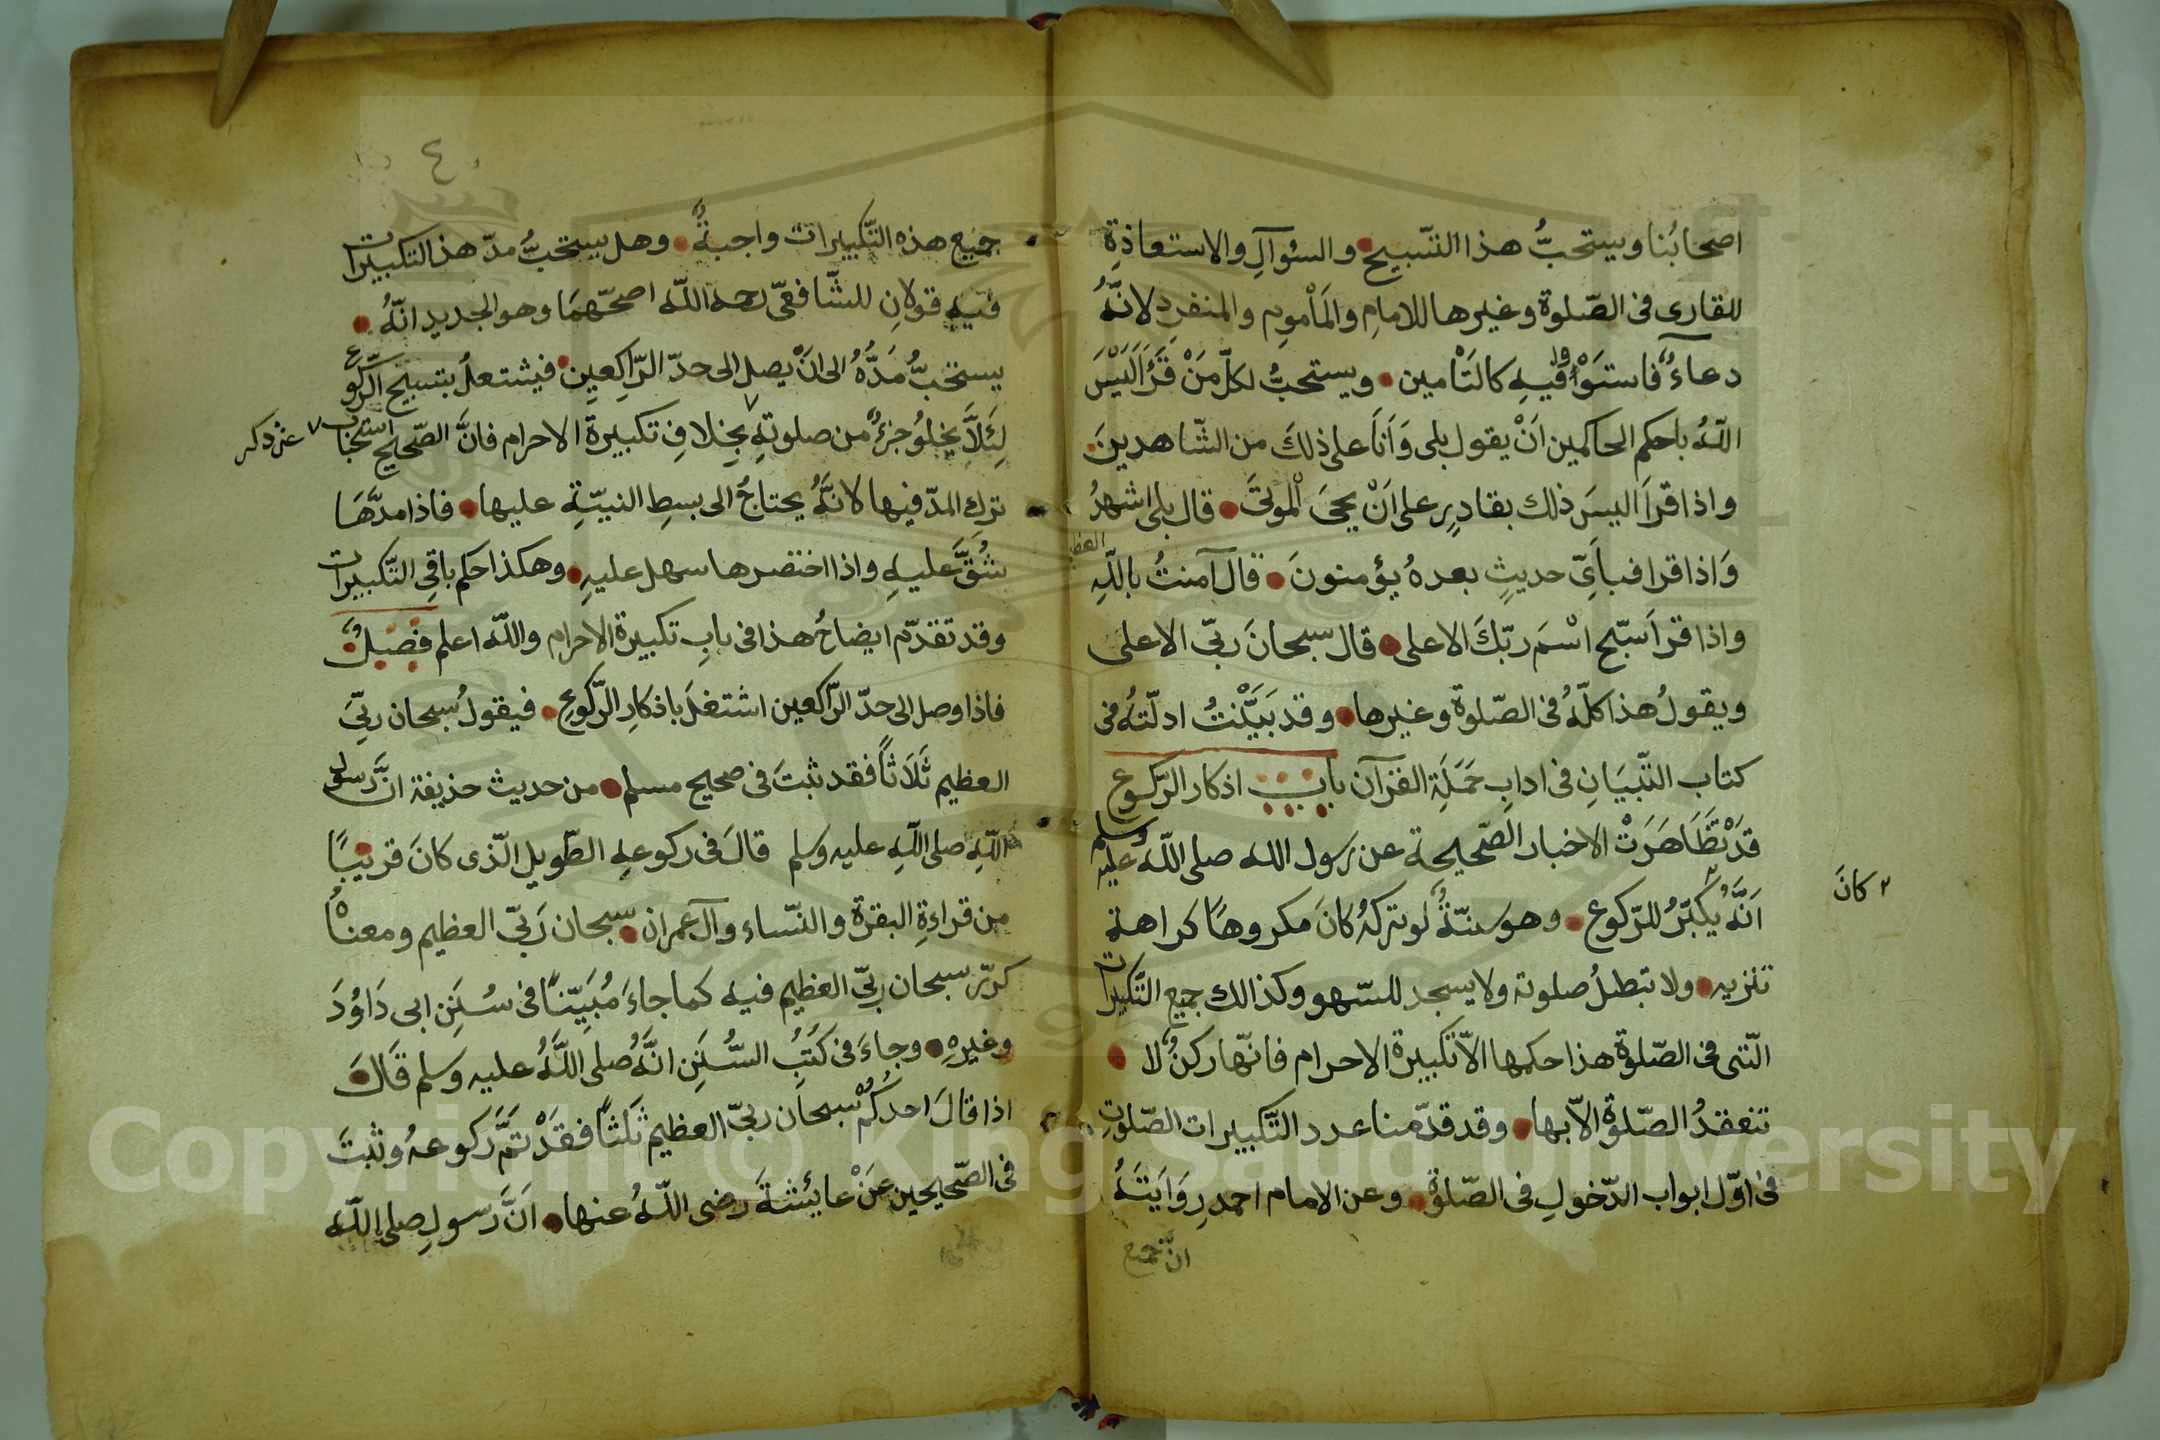 اصحابُنا ويستحبُّ هذا التّسبيح والسُوآلِ والاستعاذةِ
للقارى فى الصّلوة وغيرها للامامِ والمَأْمومِ والمنفردِ لانَّهُ
دعاءٌ فاستَوَوْا فيهِ كالتَامين ويستحبُّ لكلّ مَنْ قَرَأَ اَلَيْسَ
اللّٰهُ باحكم الحاكمين اَنْ يقول بلى وَاَنَا على ذلكَ من الشّاهدينَ
واذا قرأ اليسَ ذلك بقادرٍ على اَنْ يحيَ الْموتىَ قال بلى اشهدُ
وَاذا قرا فباَىّ حديثٍ بعدهُ يؤمنونَ قال آمنتُ باللّٰهِ
العظ
واذا قرأ سبّح اسْمَ ربّكَ الاعلى قال سبحانَ ربّى الاعلى
ويقولُ هذا كلّهُ فى الصّلوة وغيرها وقد بَيَّنْتُ ادلّتهُ فى
كتاب التّبيَانِ فى ادابِ حَمَلَةِ القرآن باب اذكار الرّكوع
قدْ تَظَاهَرَتْ الاخبار الصّحيحة عن رسول الله صلى اللّٰه عليه وسلم
اَنَّهُ يُكَبِّرُ للرّكوع وهو سنّةٌ لو تركهُ كانَ مكروهًا كراهة
٢ كانَ
تنزيه ولا تبطلُ صلوته ولا يسجد للسّهو وكذالك جميع التّكبيرات
الّتى فى الصّلوة هذا حكمها الاّ تكبيرة الاحرام فانّها ركنٌ لا
تنعقدُ الصّلوة الاّ بها وقد قدّمنا عدد التّكبيرات الصّلوتِ
فى اوّل ابواب الدّخولِ فى الصّلوة وعن الامام احمد رِوَايَتهُ
انّ جميع
٤
جميع هذه التّكبيرات واجبةٌ وهل يستحبُّ مدّ هذ التكبيرات
فيه قولانِ للشّافعىّ رحمه اللّٰه اصحّهمَا وهو الجديد انّهُ
يستحبُّ مَدَّهُ الى انْ يصل الى حدّ الرّاكعينِ فيشتعلُ بتسبيح الرّكوع
لِئَلاَّ يخلوُ جزءٌ من صلوتهِ بخلافِ تكبيرة الاحرام فانَّ الصّحيح استحباب
عن ذكر
ترك المدّ فيها لانَّهُ يحتاجُ الى بسطِ النيّةِ عليها فاذا مدَّهَا
شُقَّ عليهِ واذا اختصرها سهل عليهِ وهكذا حكم باقىِ التَّكبيرات
وقد تقدّم ايضاحُ هذا فى بابِ تكبيرة الاحرام واللّٰه اعلم فصلٌ
فاذا وصل الى حدّ الرّاكعين اشتغلَ باذكارِ الرّكوعِ فيقولُ سبحان ربّىَ
العظيم ثَلَاثاً فقد ثبتَ فى صحيح مسلم من حديث حذيفة انَّ رسول
اللّٰهِ صلى اللّٰهِ عليه وسلم قالَ فى ركوعهِ الطّويل الّذى كانَ قريبًا
من قراءةِ البقرة والنّساء وآل عمران سبحان ربّى العظيم ومعناهُ
كرّر سبحان ربّى العظيم فيه كما جاءَ مُبَيّناً فى سُنَنِ ابى دَاوُدَ
وغيرهِ وجاءَ فى كتُبُِ السُّنَنِ انَّهُ صلى اللَّهُ عليه وسلم قَالَ
اذا قالَ احدُكُمْ سبحان ربّى العظيم ثَلثاً فقدْ تمَّ ركوعهُ وثبتَ
فى الصّحيحين عَنْ عايئشةَ رضى اللّٰهُ عنها اَنَّ رسولِ صلى اللّٰه
Copyright © King Saud University